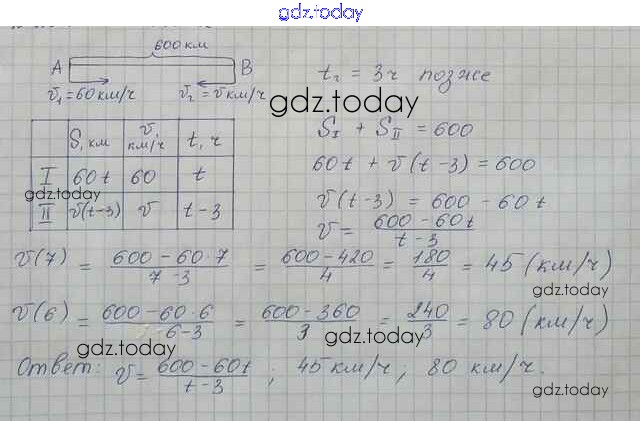 gdz.today
600 км
A B
v₁ = 60 км/ч v₂ = v км/ч
t₂ = 3 ч позже
gdz.today
S, км v, км/ч t, ч
I 60t 60 t
gdz.today
II v(t-3) v t-3
S_I + S_II = 600
60t + v(t-3) = 600
v(t-3) = 600 - 60t
v = (600-60t)/(t-3)
v(7) = (600-60·7)/(7-3) = (600-420)/4 = 180/4 = 45 (км/ч)
gdz.today
v(6) = (600-60·6)/(6-3) = (600-360)/3 = 240/3 = 80 (км/ч)
gdz.today
Ответ: v = (600-60t)/(t-3); 45 км/ч; 80 км/ч.
gdz.today